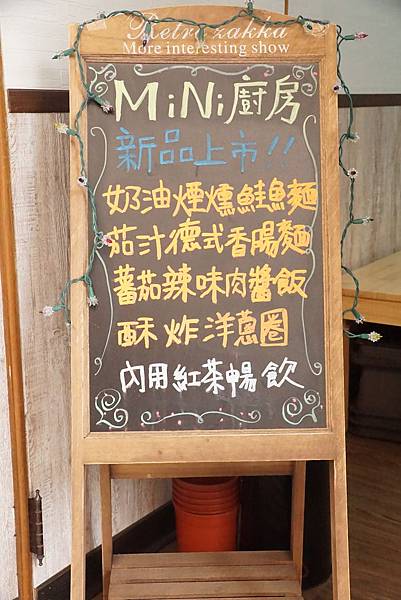 Retro zakka
More interesting show
MiNi廚房
新品上市!!
奶油煙燻鮭魚麵
茄汁德式香腸麵
蕃茄辣味肉醬飯
酥炸洋蔥圈
內用紅茶暢飲